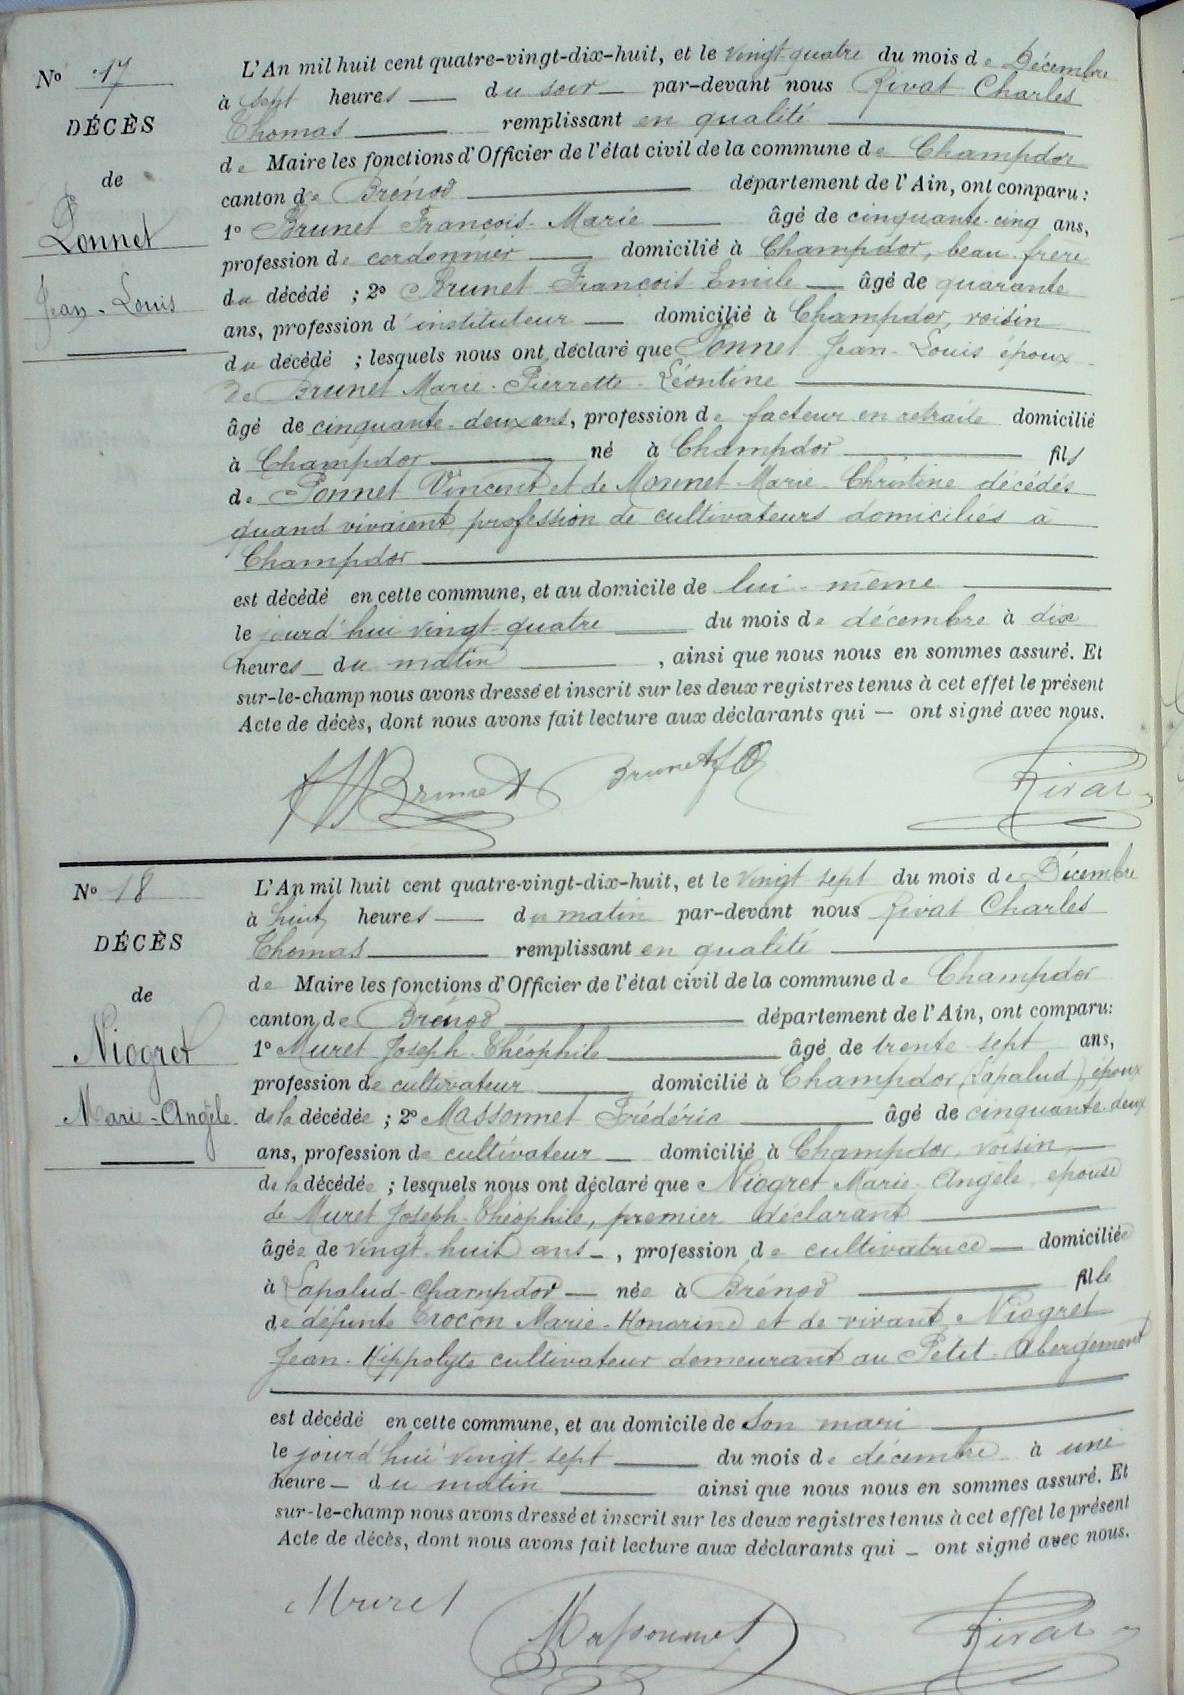 N° 17
DÉCÈS
de
Ponnet
Jean-Louis
L'An mil huit cent quatre-vingt-dix-huit, et le vingt-quatre du mois de Décembre
à sept heures du soir par-devant nous Rivat Charles
Thomas remplissant en qualité
de Maire les fonctions d'Officier de l'état civil de la commune de Champdor
canton de Brénod département de l'Ain, ont comparu :
1° Brunet François-Marie âgé de cinquante-cinq ans,
profession de cordonnier domicilié à Champdor, beau-frère
du décédé ; 2° Brunet François-Emile âgé de quarante
ans, profession d'instituteur domicilié à Champdor, voisin
du décédé ; lesquels nous ont déclaré que Ponnet Jean-Louis époux
de Brunet Marie-Pierrette-Léontine
âgé de cinquante-deux ans, profession de facteur en retraite domicilié
à Champdor né à Champdor fils
de Ponnet Vincent et de Monnet Marie-Christine décédés
quand vivaient profession de cultivateurs domiciliés à
Champdor
est décédé en cette commune, et au domicile de lui-même
le jourd'hui vingt-quatre du mois de décembre à dix
heures du matin, ainsi que nous nous en sommes assuré. Et
sur-le-champ nous avons dressé et inscrit sur les deux registres tenus à cet effet le présent
Acte de décès, dont nous avons fait lecture aux déclarants qui — ont signé avec nous.
Brunet Brunet Rivat
N° 18
DÉCÈS
de
Niogret
Marie-Angèle
L'An mil huit cent quatre-vingt-dix-huit, et le vingt-sept du mois de Décembre
à huit heures du matin par-devant nous Rivat Charles
Thomas remplissant en qualité
de Maire les fonctions d'Officier de l'état civil de la commune de Champdor
canton de Brénod département de l'Ain, ont comparu:
1° Muret Joseph-Théophile âgé de trente-sept ans,
profession de cultivateur domicilié à Champdor (Lapalud), époux
de la décédée ; 2° Massonnet Frédéric âgé de cinquante-deux
ans, profession de cultivateur domicilié à Champdor, voisin
de la décédée ; lesquels nous ont déclaré que Niogret Marie-Angèle épouse
de Muret Joseph-Théophile, premier déclarant
âgée de vingt-huit ans, profession de cultivatrice domiciliée
à Lapalud-Champdor née à Brénod fille
de défunte Crocon Marie-Honorine et de vivant Niogret
Jean-Hippolyte cultivateur demeurant au Petit-Abergement
est décédé en cette commune, et au domicile de son mari
le jourd'hui vingt-sept du mois de décembre à une
heure du matin ainsi que nous nous en sommes assuré. Et
sur-le-champ nous avons dressé et inscrit sur les deux registres tenus à cet effet le présent
Acte de décès, dont nous avons fait lecture aux déclarants qui — ont signé avec nous.
Muret Massonnet Rivat